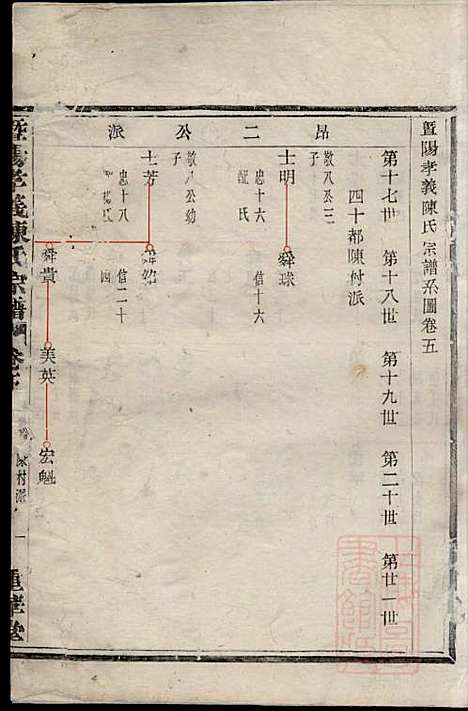 暨陽孝義陳氏宗譜系圖卷五
第十七世 第十八世 第十九世 第二十世 第廿一世
四十都陳村派
昂二公派
士明
敬八公三子
忠十六
舜球
信十六
士芳
敬八公幼子
忠十八
信二十四
舜貴
美英
宏魁
暨陽孝義陳氏宗譜
陳村派